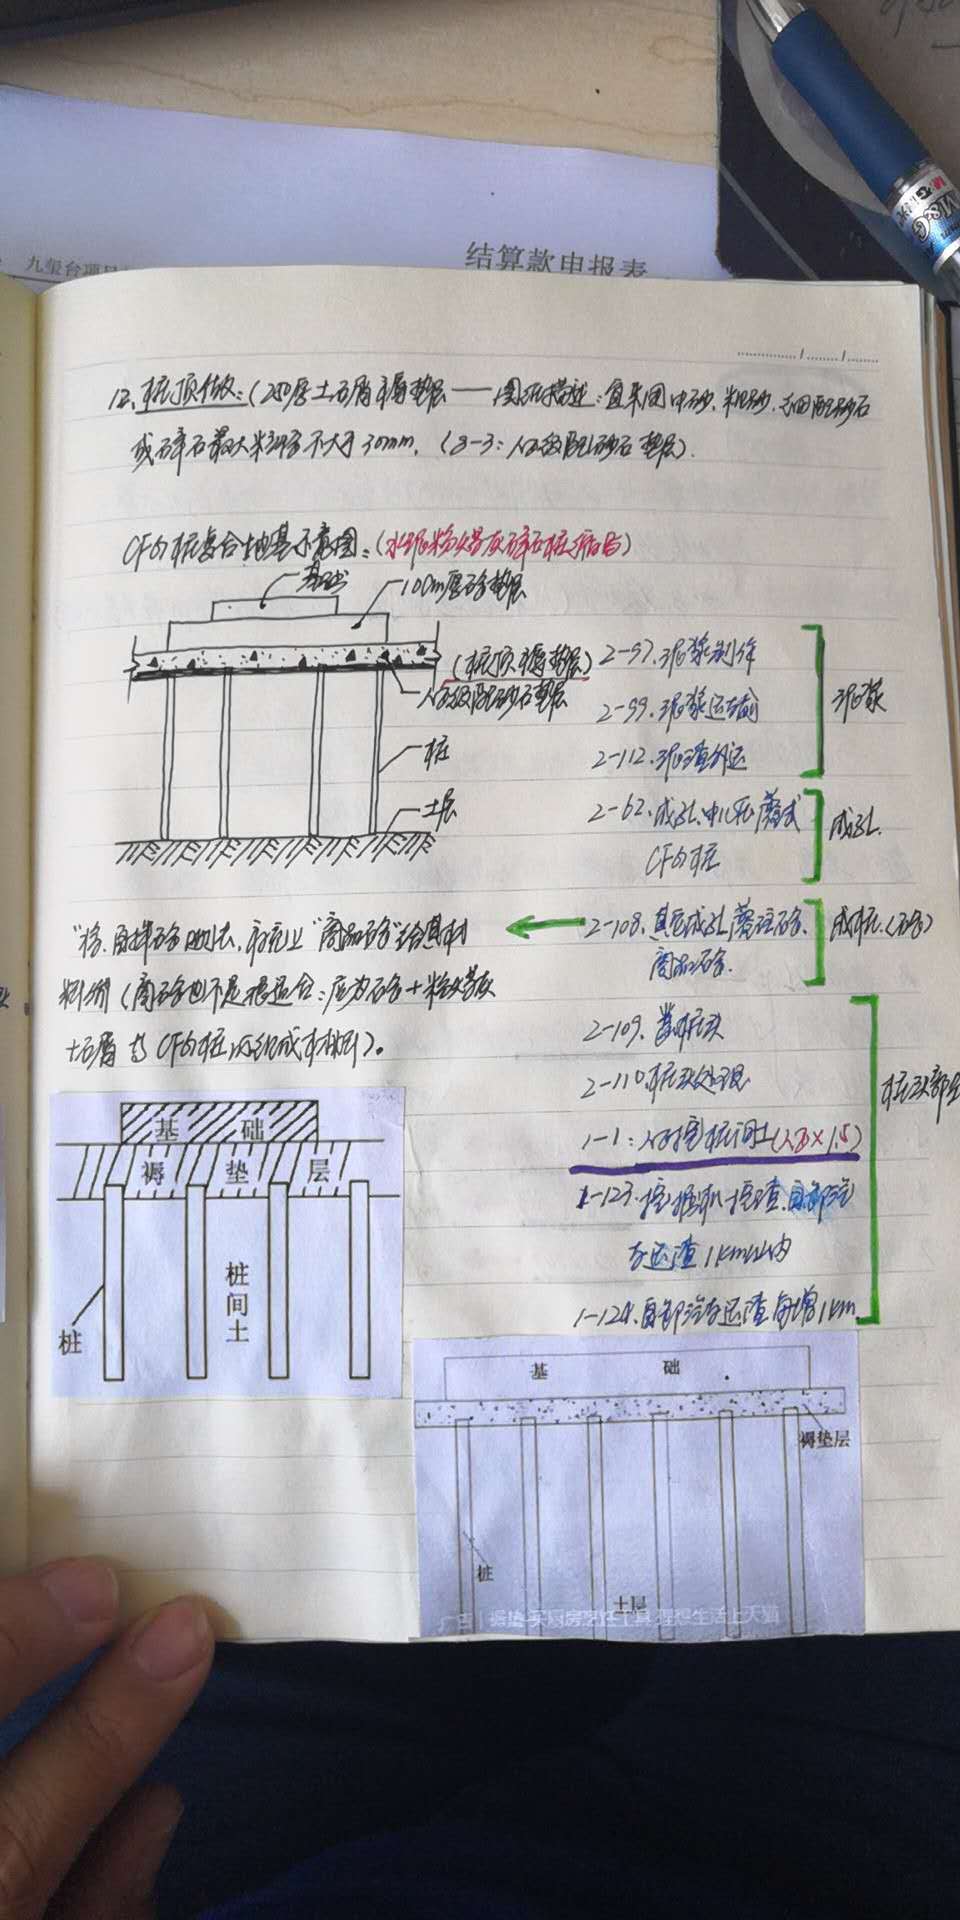 九玺台项目
结算款申报表
M&G
12、桩顶做法：（250厚土石屑褥垫层——图纸描述：宜采用中砂、粗砂、级配砂石
或碎石最大粒径不大于30mm。（8-3：人工级配砂石垫层）
CFG桩复合地基示意图：（水泥粉煤灰碎石桩）
基础
100厚砼垫层
（桩顶褥垫层）
人工级配砂石垫层
桩
土层
2-97.泥浆制作
2-99.泥浆运输
2-112.泥渣外运
泥浆
2-62.成孔
CFG桩
成孔.
2-108.其它成孔灌注砼.
商品砼.
成桩.（砼）
"将.自拌砼 "商品砼"
（商砼也不是很适合：应为砼+粉煤灰
+石屑 CFG桩的组成材料）。
2-109、凿桩头
2-110.桩头处理
1-1：人工挖桩间土（人工×1.5）
1-123.挖掘机挖渣.自卸汽
车运渣1km以内
1-124.自卸汽车运渣每增1km
桩头部分
基 础
褥 垫 层
桩间土
桩
基 础
褥垫层
桩
土层